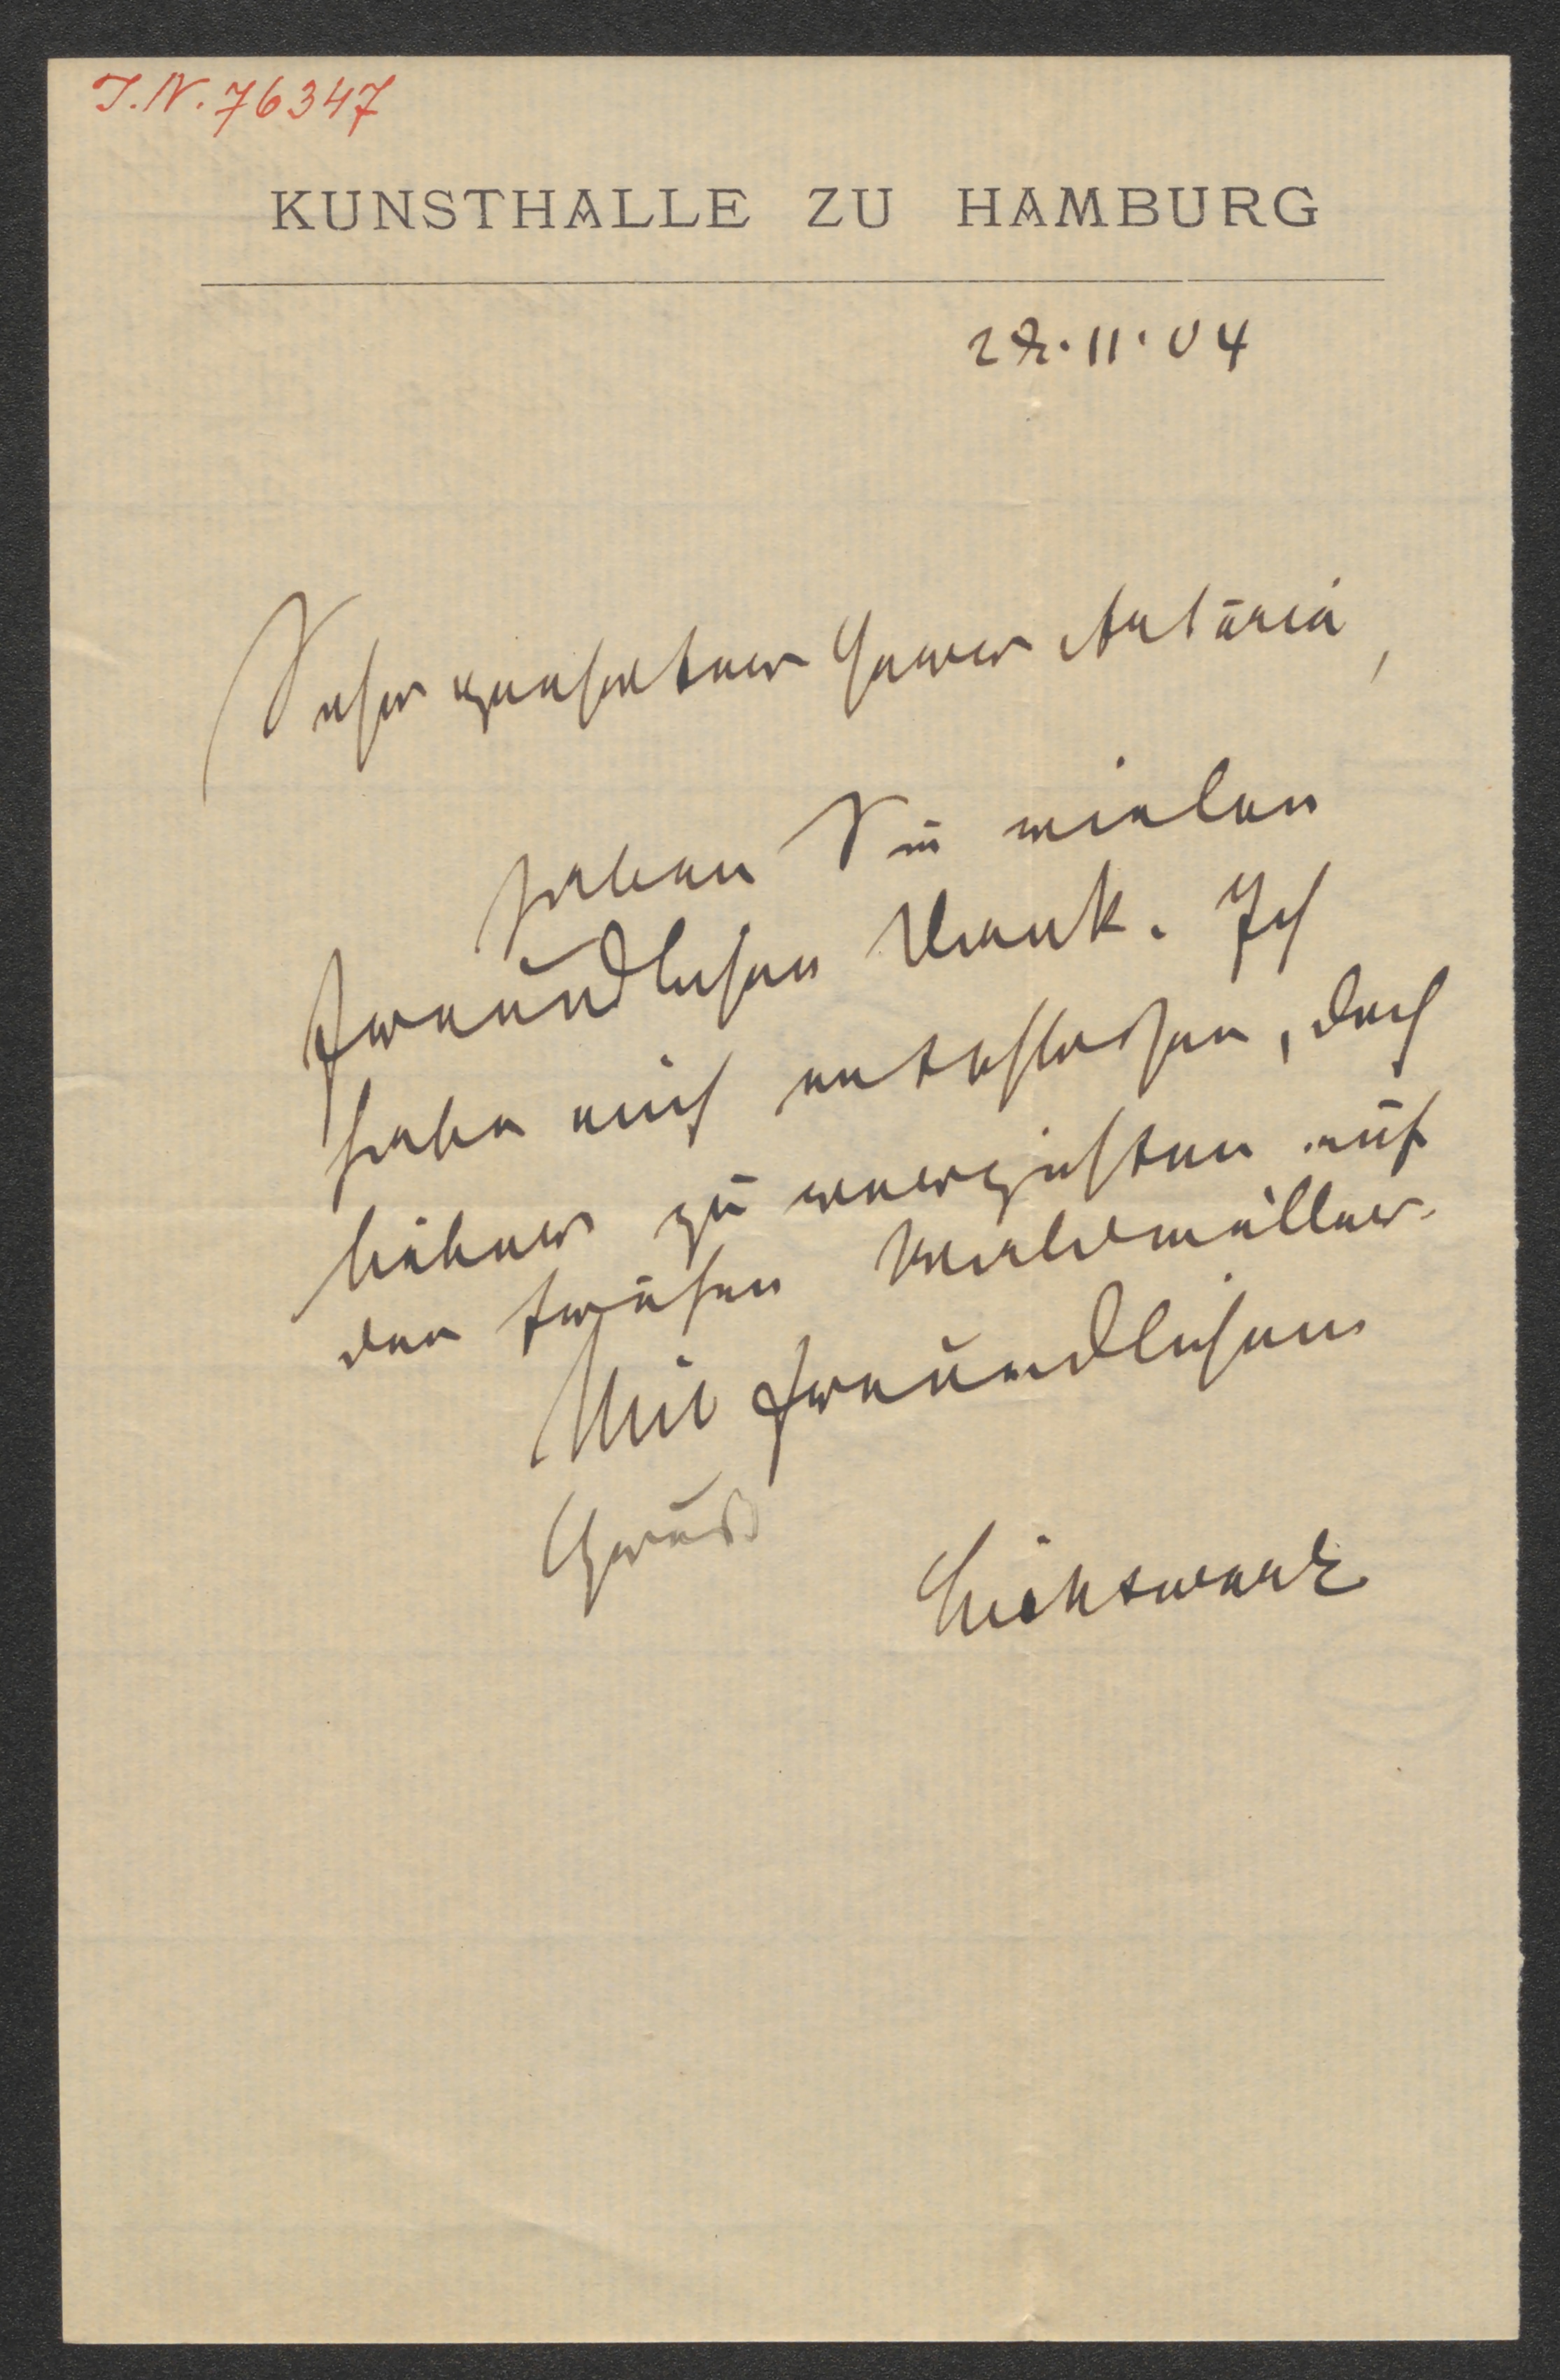 I.N. 76347
KUNSTHALLE ZU HAMBURG
28.11.04
Sehr geehrter Herr Artaria,
haben Sie vielen
freundlichen Dank. Ich
habe mich entschlossen, doch
lieber zu verzichten auf
den frühen Waldmüller.
Mit freundlichem
Gruß
Lichtwark